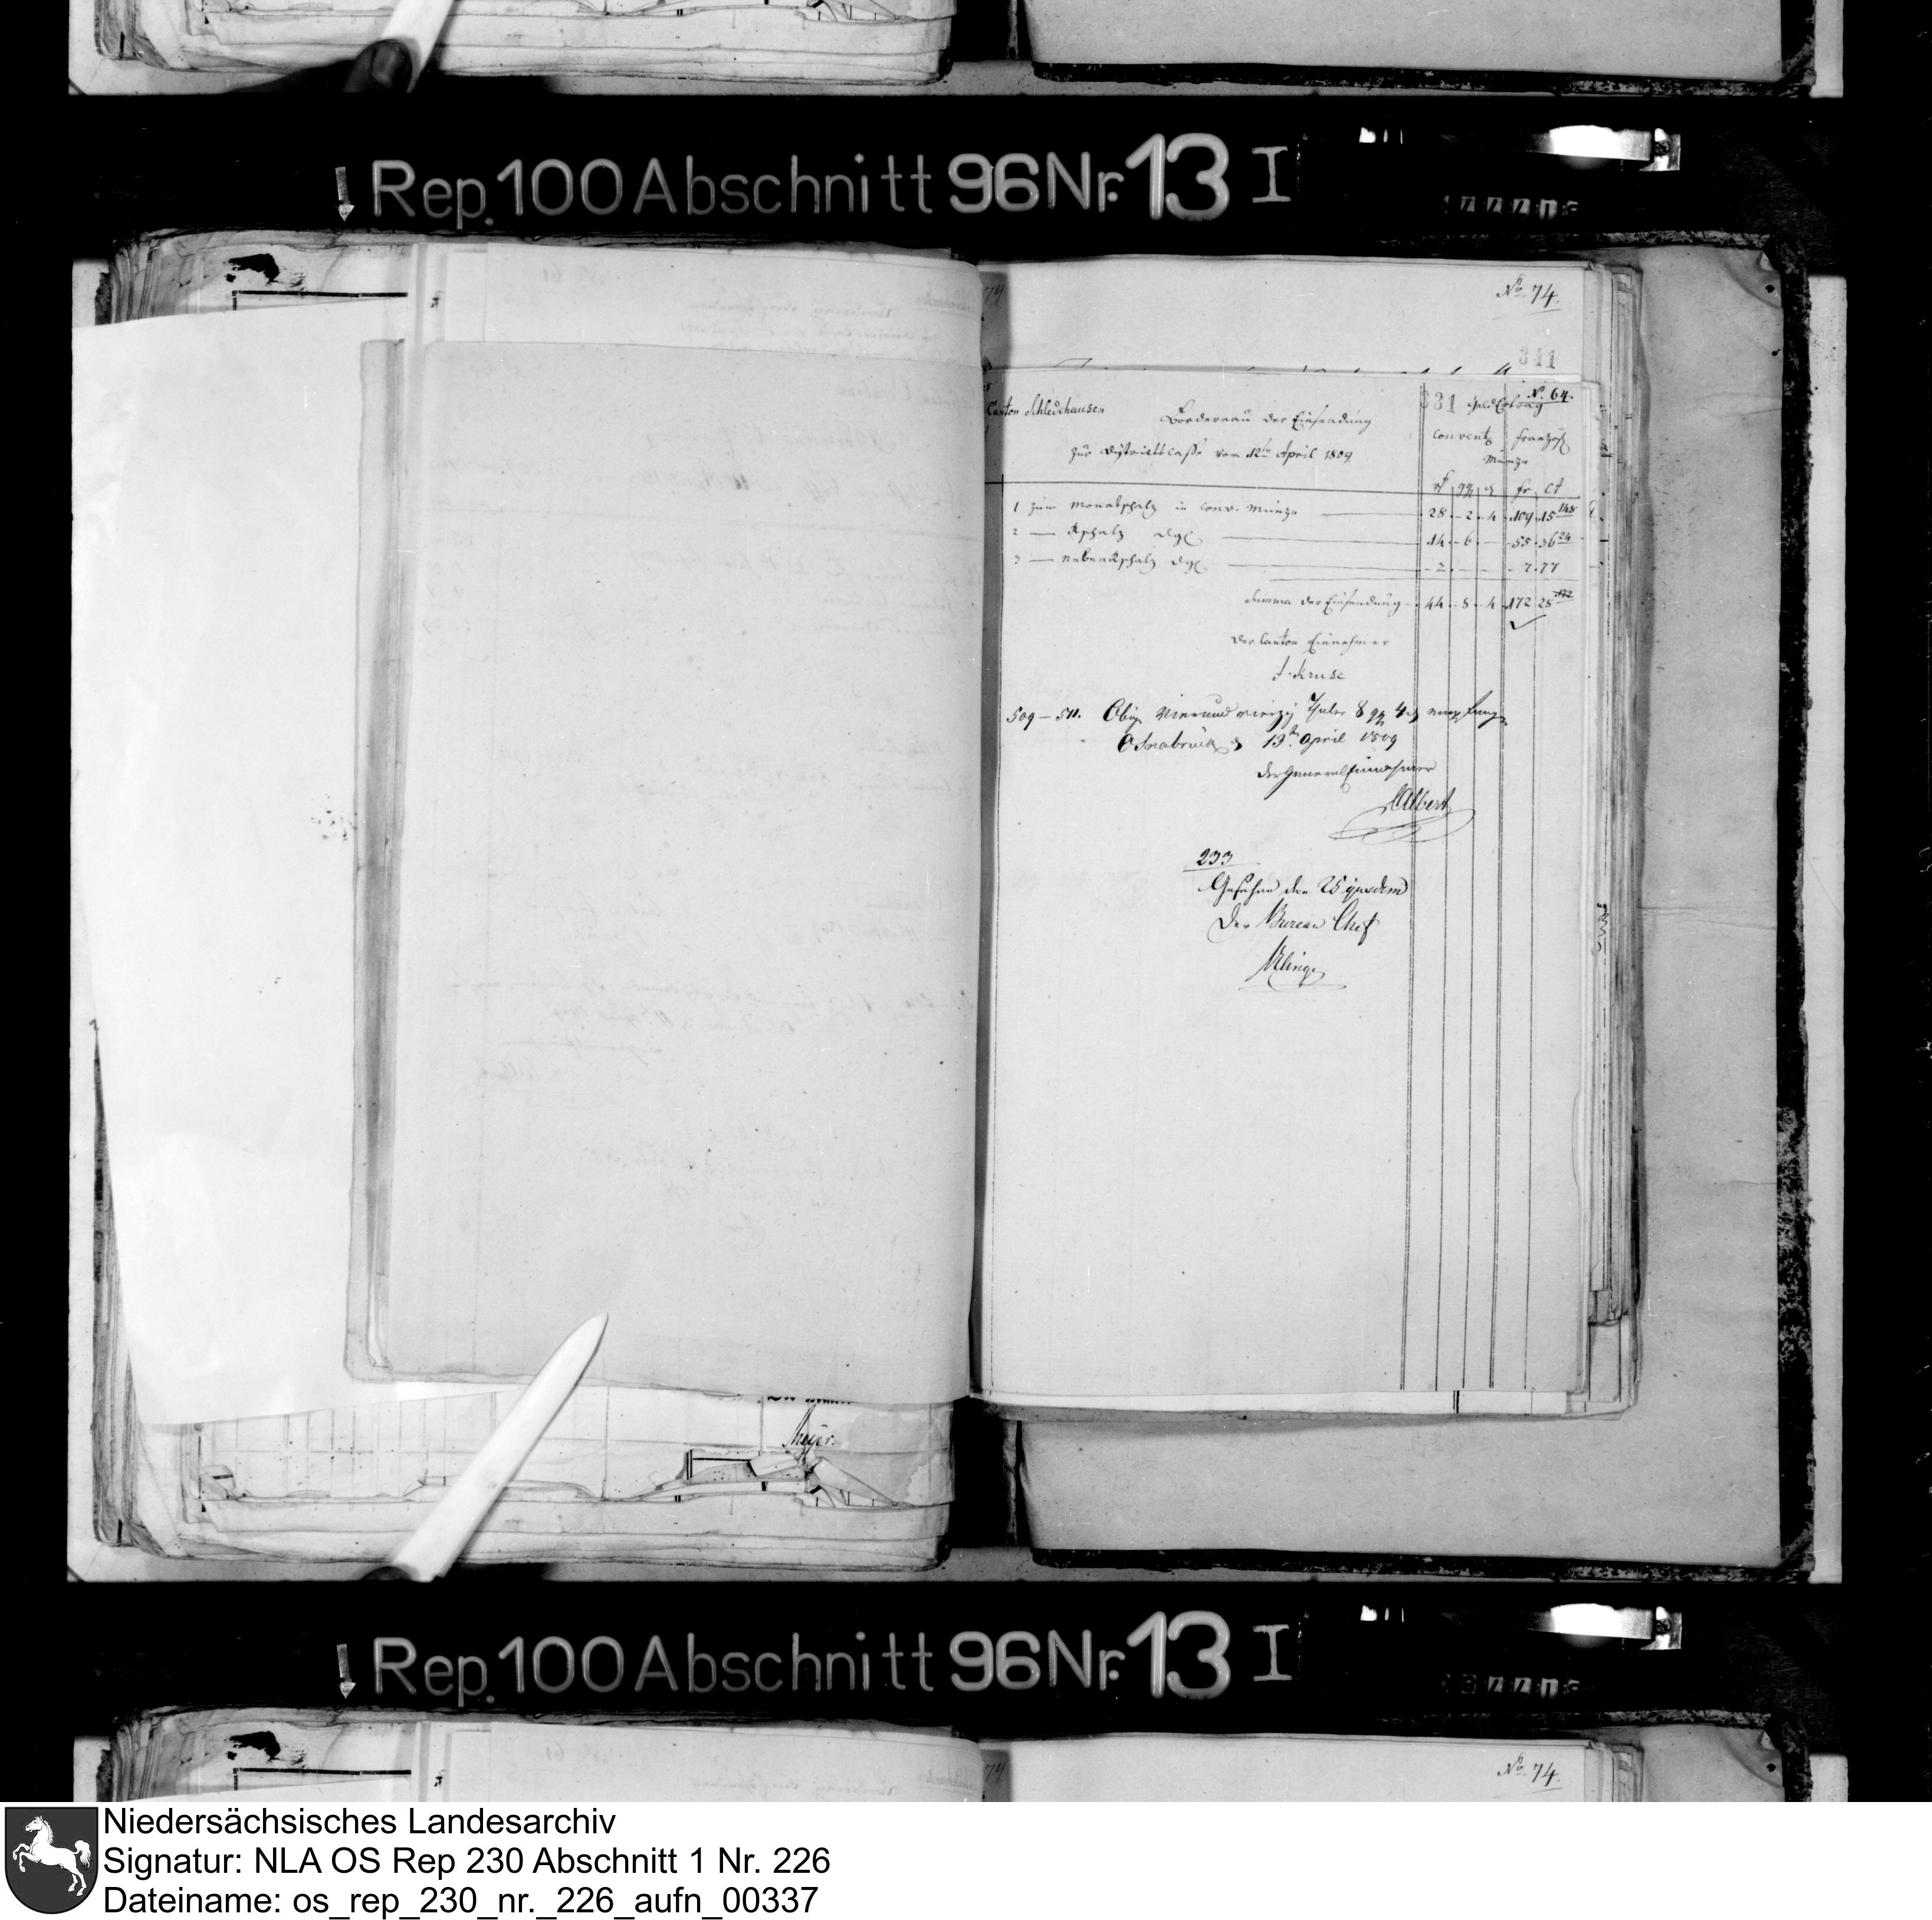 Rep. 100 Abschnitt 96 Nr. 13 I
No. 74.
341
331
N. 64.
Canton Schledehausen
Bordereau der Einsendung
zur Districtscasse vom 12ten April 1809
Geld Betrag
Convent. französ.
Münze
rt gg d fr. ct
1 zum Monatschatz in Conv. Münze 28 - 2 - 4 109 15 148
2 — Rschatz dgl 14 - 6 - 55 36 24
3 — Nebenrschatz dgl 2 - - 7. 77
Summa der Einsendung - 44 - 8 - 4 172 28
der Canton Einnehmer
J. Kruse
509 - 511. Obige Vierundvierzig Thaler 8 gg 4 d empfangen
Osnabrück d 13t April 1809
Der General Einnehmer
Albert
233
Gesehen den 25 ejusdem
Der Bureau Chef
Klinge
Meyer.
Rep. 100 Abschnitt 96 Nr. 13 I
No. 74.
Niedersächsisches Landesarchiv
Signatur: NLA OS Rep 230 Abschnitt 1 Nr. 226
Dateiname: os_rep_230_nr._226_aufn_00337